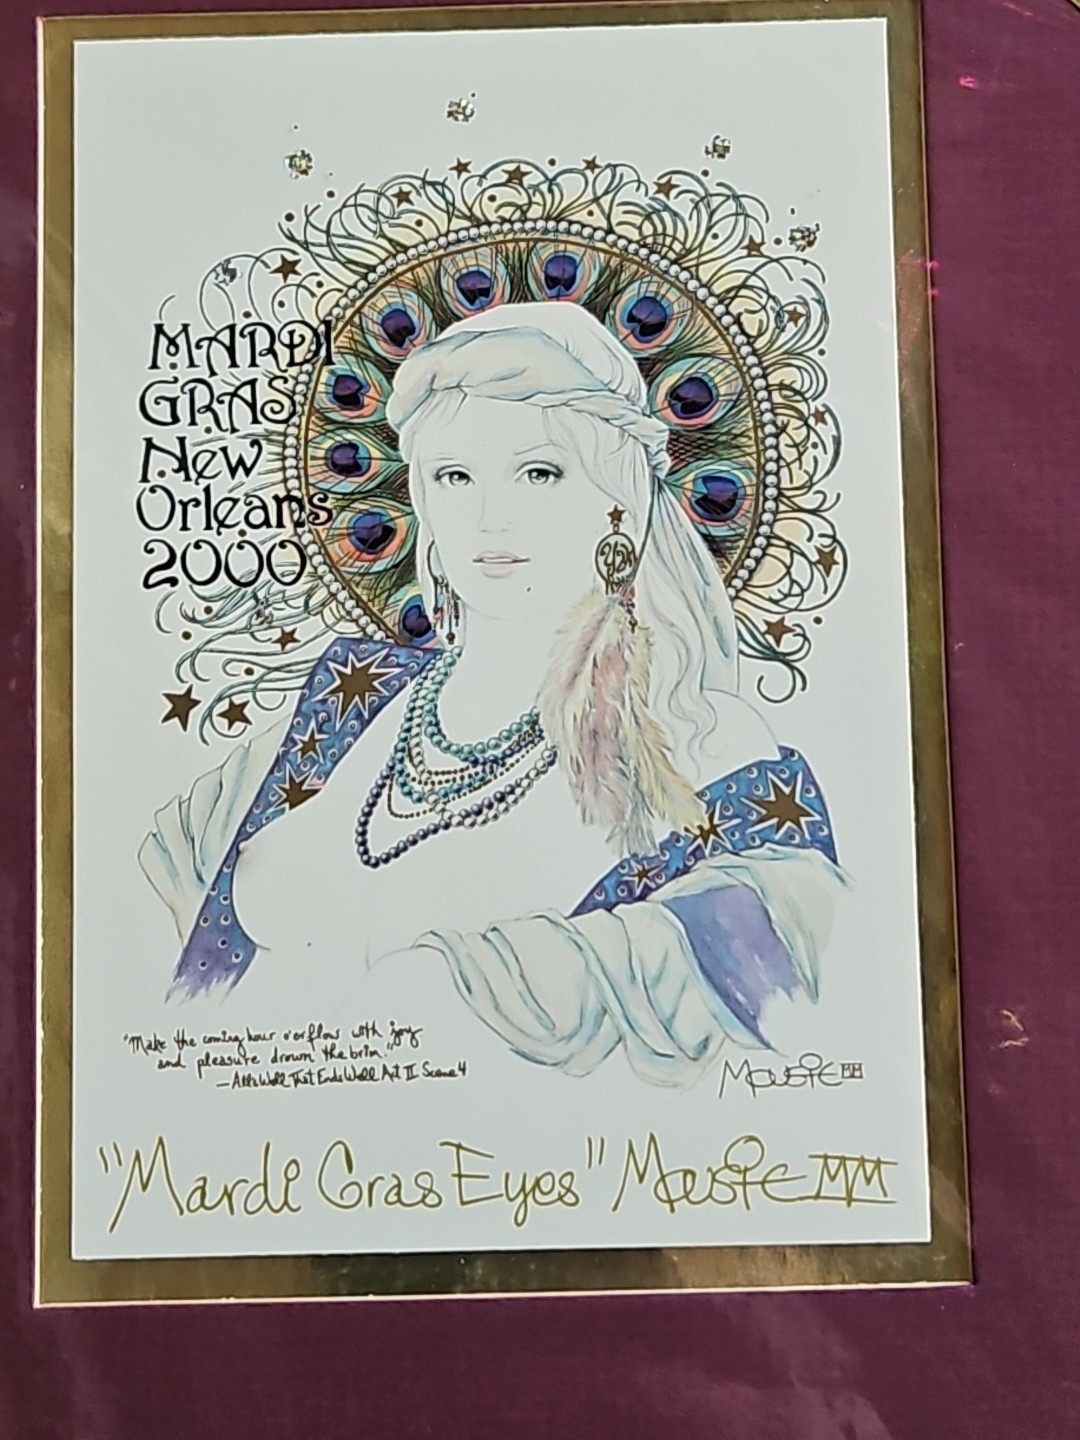 MARDI
GRAS
New
Orleans
2000
"Make the coming hour o'erflow with joy
and pleasure drown the brim."
—All's Well That Ends Well Act II Scene 4
Mousie MM
"Mardi Gras Eyes" Mousie MM